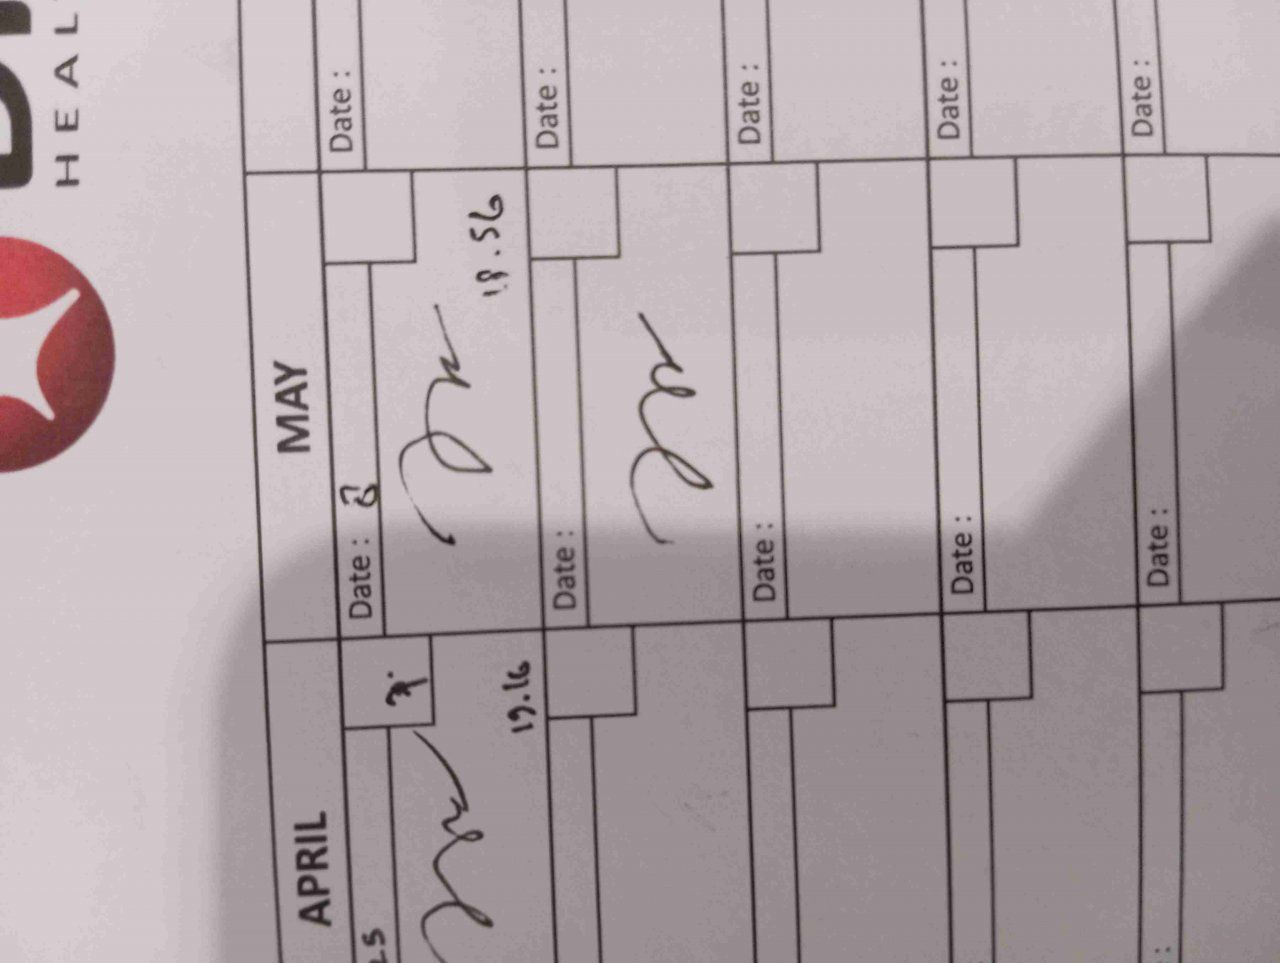 HEAL
APRIL
MAY
25
Date :
Date :
19.16
18.56
Date :
Date :
Date :
Date :
Date :
Date :
Date :
Date :